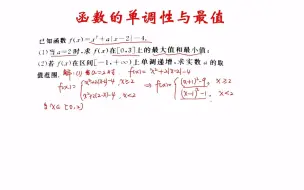 函数的单调性与最值
已知函数 f(x)=x²+a|x-2|-4.
(1)当 a=2 时,求 f(x) 在 [0,3] 上的最大值和最小值;
(2)若 f(x) 在区间 [-1,+∞) 上单调递增,求实数 a 的取
值范围. 解:(1) 当a=2时 f(x)= x²+2|x-2|-4
f(x)= { x²+2(x-2)-4 , x≥2 ⇒ f(x)= { (x+1)²-9, x≥2
x²+2(2-x)-4 , x<2 (x-1)²-1, x<2
当 x∈[0,2)